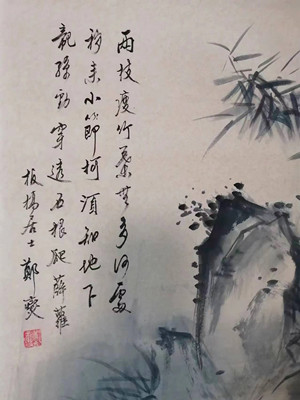 两枝瘦竹葉無多何處
移来小節柯須知地下
龍孫勁穿透石根配薜蘿
板橋居士鄭燮